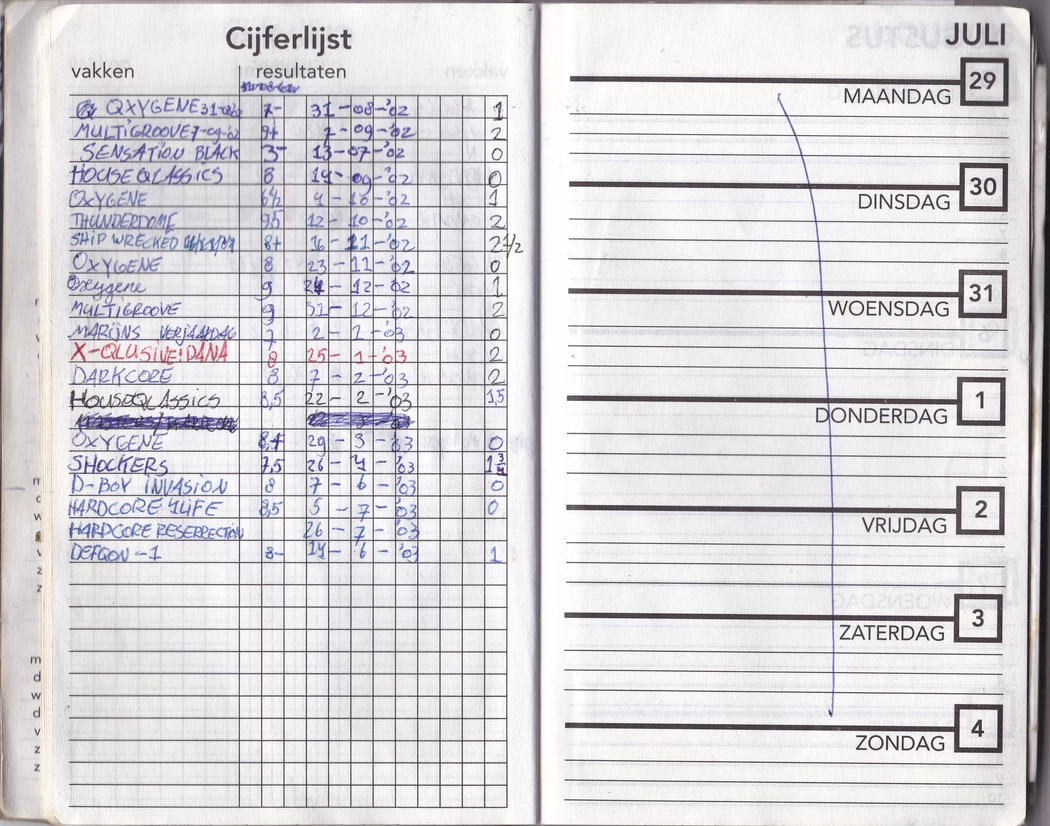 Cijferlijst
vakken resultaten
OXYGENE 31-08-02 7- 31-08-'02 1
MULTIGROOVE 7-09-02 9+ 7-09-'02 2
SENSATION BLACK 3- 13-07-'02 0
HOUSEQLASSICS 8 14-09-'02 0
OXYGENE 6½ 4-10-'02 1
THUNDERDOME 9,5 12-10-'02 2
SHIP WRECKED 8+ 16-11-'02 2½
OXYGENE 8 23-11-'02 0
Oxygene 9 24-12-'02 1
MULTIGROOVE 9 31-12-'02 2
MARIJNS VERJAARDAG 7 2-2-'03 0
X-QLUSIVE: DANA 8 25-1-'03 2
DARKCORE 8 7-2-'03 2
HOUSEQLASSICS 8,5 22-2-'03 1,5
OXYGENE 8,4 29-3-'03 0
SHOCKERS 7,5 26-4-'03 1¾
D-BOY INVASION 8 7-6-'03 0
HARDCORE 4LIFE 8,5 5-7-'03 0
HARDCORE RESERRECTION 26-7-'03
DEFQON-1 8- 14-6-'03 1
m
d
w
d
v
z
z
JULI
29
MAANDAG
30
DINSDAG
31
WOENSDAG
1
DONDERDAG
2
VRIJDAG
3
ZATERDAG
4
ZONDAG